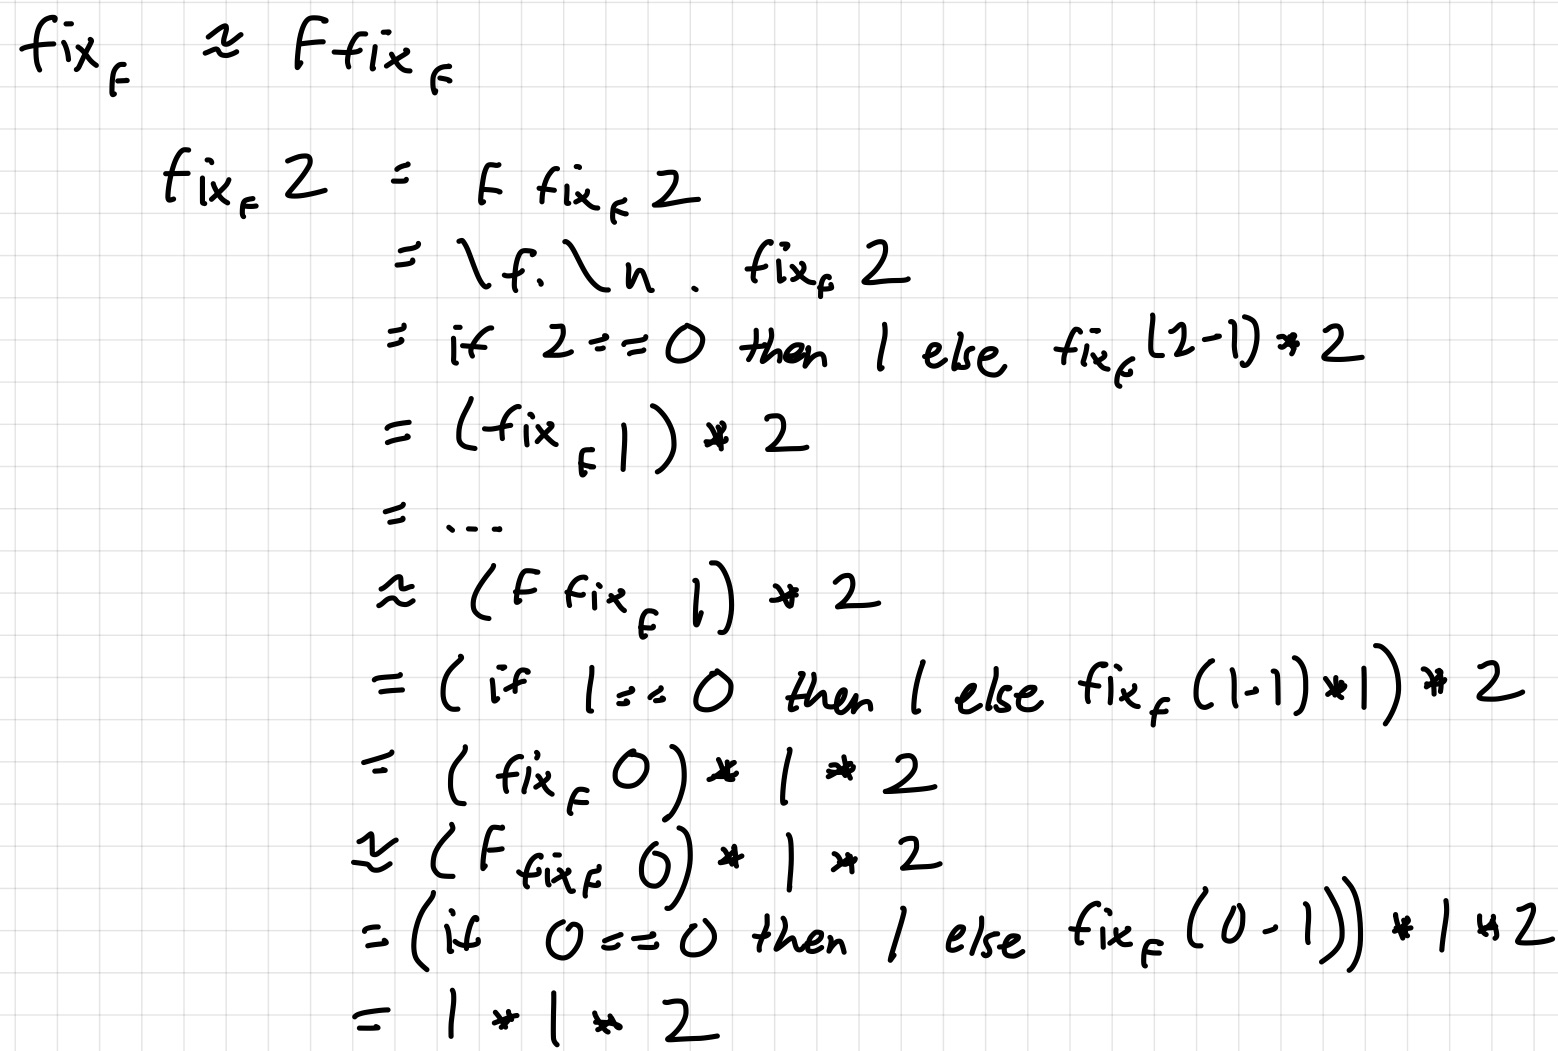 fix_F ≈ F fix_F
fix_F 2 = F fix_F 2
= \f. \n . fix_F 2
= if 2 == 0 then 1 else fix_F (2-1) * 2
= (fix_F 1) * 2
= ...
≈ (F fix_F 1) * 2
= (if 1 == 0 then 1 else fix_F (1-1) * 1) * 2
= (fix_F 0) * 1 * 2
≈ (F fix_F 0) * 1 * 2
= (if 0 == 0 then 1 else fix_F (0-1)) * 1 * 2
= 1 * 1 * 2